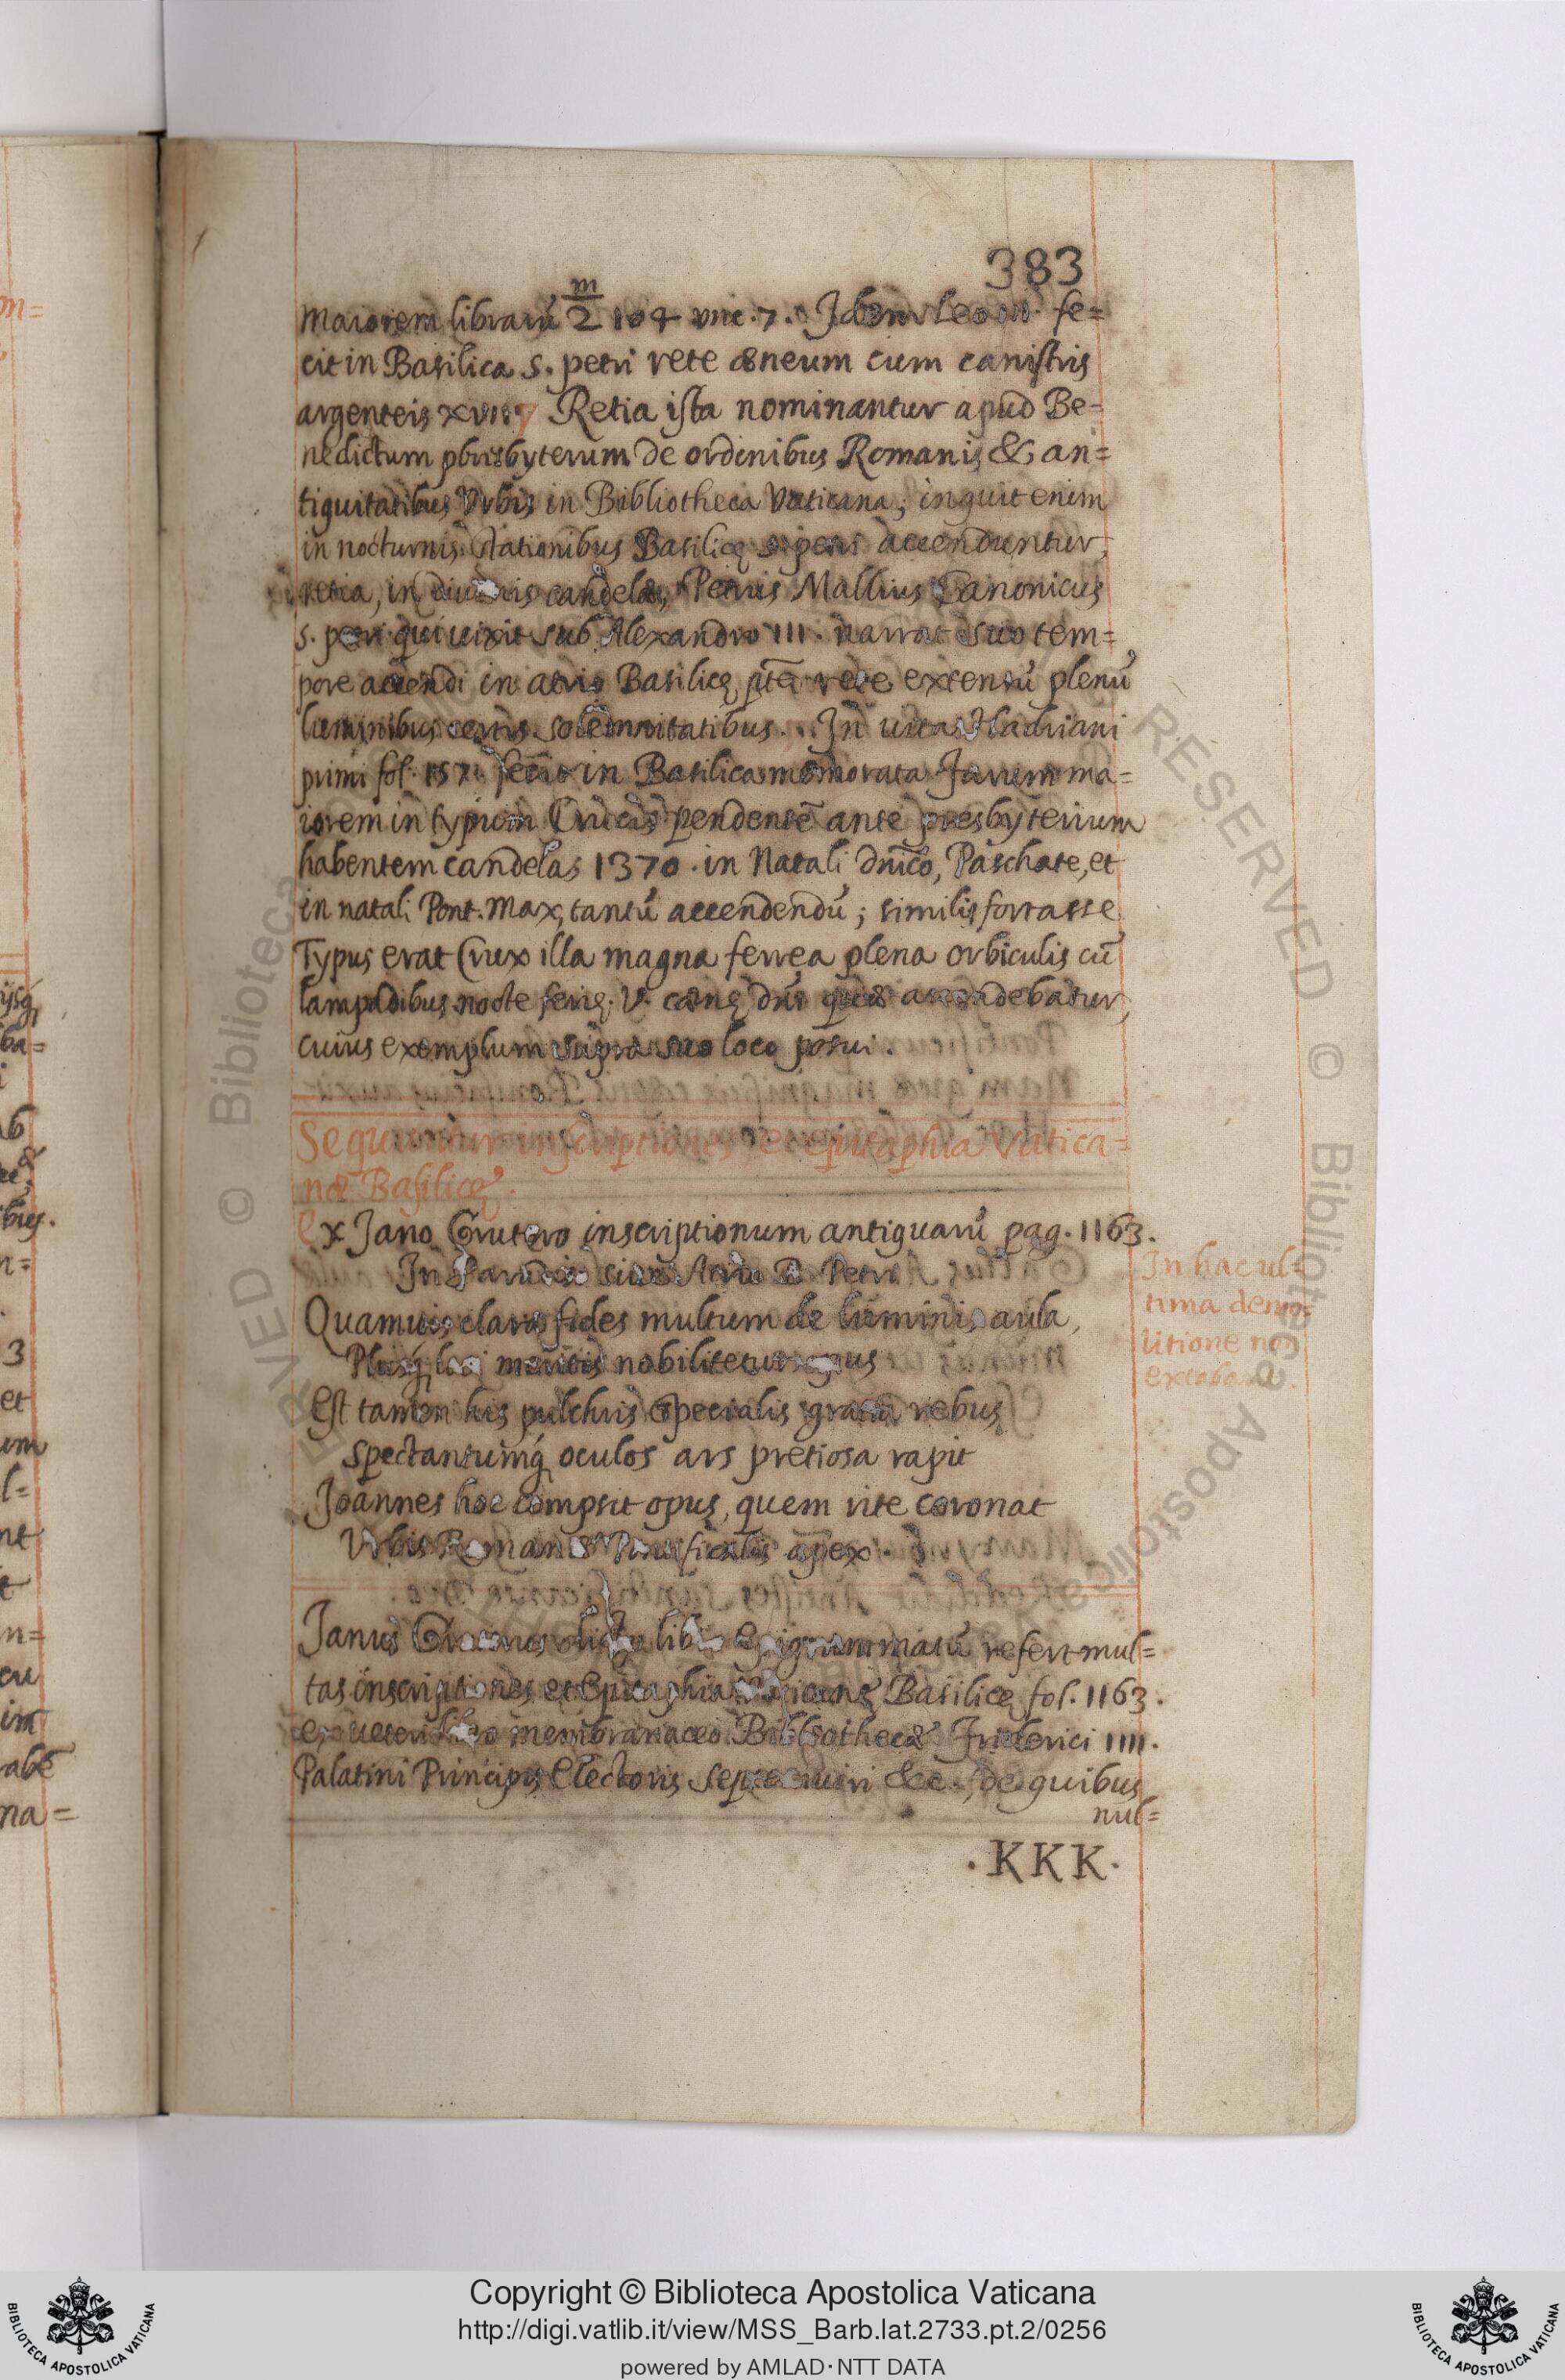 383
maiorem librarū m/2 104 unc. 7. Idem Leo IV. fe=
cit in Basilica S. petri rete æneum cum canistris
argenteis XVII. Retia ista nominantur apud Be=
nedictum pbrisbyterum de ordinibus Romanis & an=
tiquitatibus Vrbis in Bibliotheca Vaticana; inquit enim
in nocturnis stationibus Basilicę s. petri accenduntur,
retia, in candelæ, Petrus Mallius Canonicus
s. petri qui uixit sub Alexandro III. narrat suo tem=
pore accendi in atrio Basilicę rete extensū plenū
luminibus certis solemnitatibus. In uita Hadriani
primi fol. 157. fecit in Basilica memorata farum ma=
iorem in typum Crucis pendentē ante presbyterium
habentem candelas 1370. in Natali dnico, Paschate, et
in natali Pont. Max, tantū accendendū; similis fortasse
Typus erat Crux illa magna ferrea plena orbiculis cū
lampadibus nocte ferię. V. cænę dni quæ accendebatur,
cuius exemplum supra suo loco posui.
Sequuntur inscriptiones, et epitaphia Vatica=
næ Basilicę.
Ex Jano Grutero inscriptionum antiquarū pag. 1163.
In Paradiso siue Atrio B. Petri
Quamuis clara fides multum de luminis aula,
meritis nobilitetur opus
Est tamen his pulchris specialis gratia rebus
Spectantumq́ oculos ars pretiosa rapit
Joannes hoc compsit opus, quem rite coronat
Vrbis Romanæ Pontificalis apex.
In hac ul=
tima demo=
litione non
extabant.
Janus Gruterus libro Epigrammatū refert mul=
tas inscriptiones et Epitaphia Vaticanę Basilicę fol. 1163.
ex ueteri libro membranaceo Bibliothecæ Friderici IIII.
Palatini Principis Electoris Septemuiri &c. de quibus
nul=
. KKK .
Copyright © Biblioteca Apostolica Vaticana
http://digi.vatlib.it/view/MSS_Barb.lat.2733.pt.2/0256
powered by AMLAD·NTT DATA